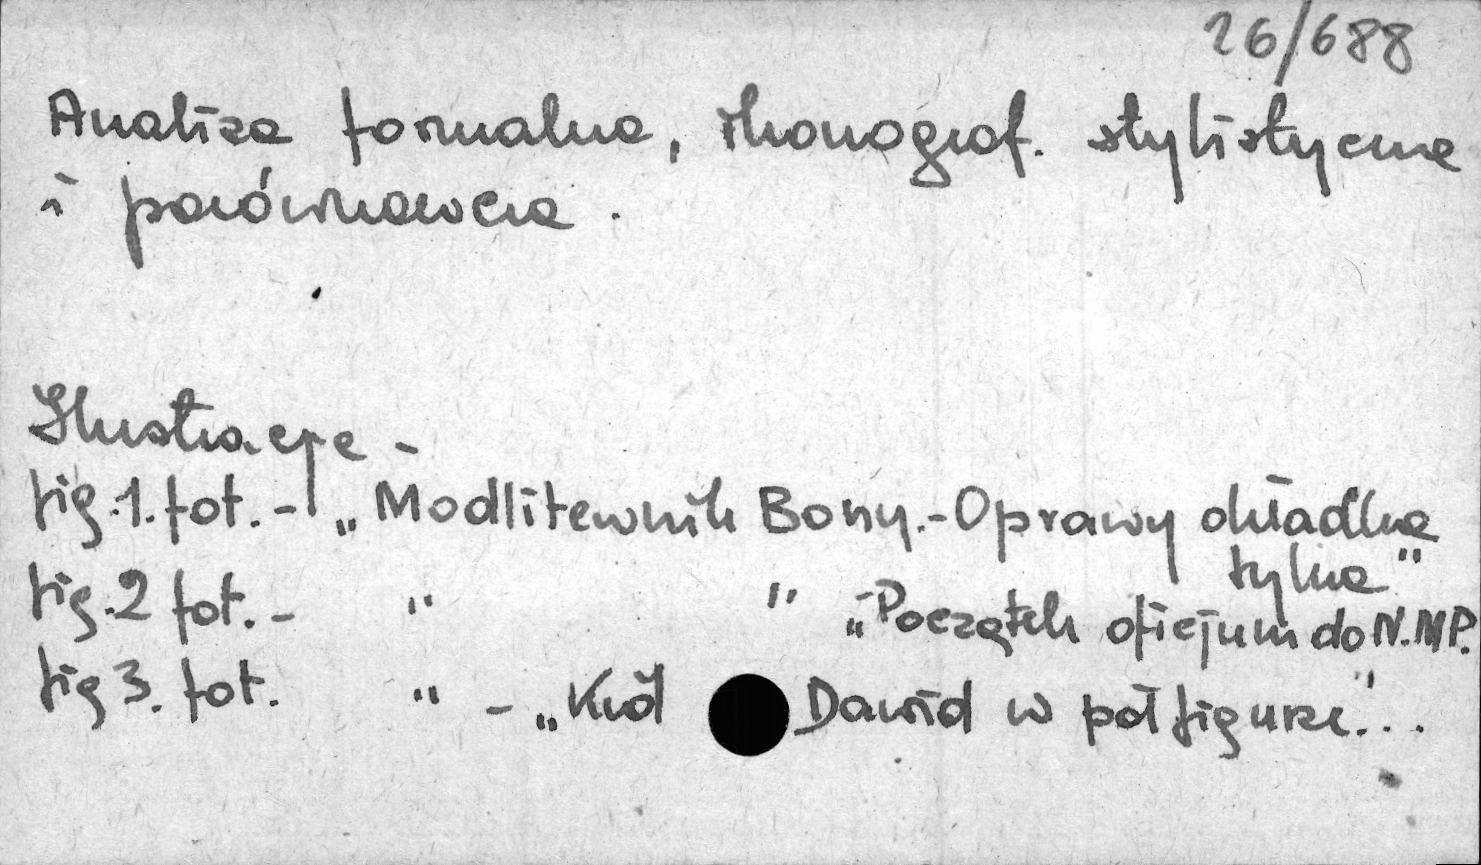 26/688
Analiza formalna, ikonograf. stylistyczna
i porównawcza.
Ilustracje -
fig.1. fot. - „Modlitewnik Bony.-Oprawy okładka
tylna"
fig.2 fot. - " " „Początek oficjum do N.MP.
fig 3. fot. " - „Król Dawid w półfigurze"...